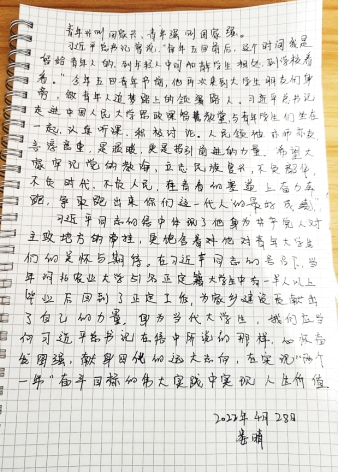 青年兴则国家兴，青年强则国家强。
习近平总书记常说，"每年五四前后，这个时间我是
留给青年人的，到年轻人中间和同学生相处，到学校看
看。"今年五四青年节前，他再次来到大学生朋友们中
间，做青年人追梦路上的领路人，习近平总书记
走进中国人民大学 教室与青年学生们坐在
一起，认真听课，积极讨论。人民领袖
是温暖，更是指引前进的力量，希望大
家牢记党的教诲，立志民族复兴，不负韶华，
不负时代，不负人民，在青春的赛道上奋力奔
跑，争取跑出你们这一代人的最好成绩！"
习近平同志的信中体现了他身为共产党人对
主政地方的 ，更饱含着对他对青年大学生
们的关怀与期待。在习近平同志的 下，当
年河北农业大学51名正定籍大学生中有一半人以上
毕业后回到了正定工作，为家乡建设贡献出
了自己的力量，身为当代大学生，我们应当
向习近平总书记在信中所说的那样，心怀奋
发图强，献身四化的远大志向，在实现"两个
一年"奋斗目标的伟大实践中实现人生价值
2022年4月28日